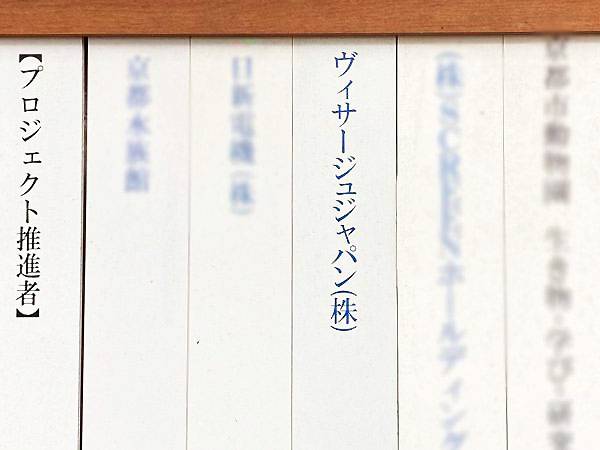 京都市動物園 生き物・学び・研究
(株)SCREENホールディング
ヴィサージュジャパン(株)
日新電機(株)
京都水族館
【プロジェクト推進者】